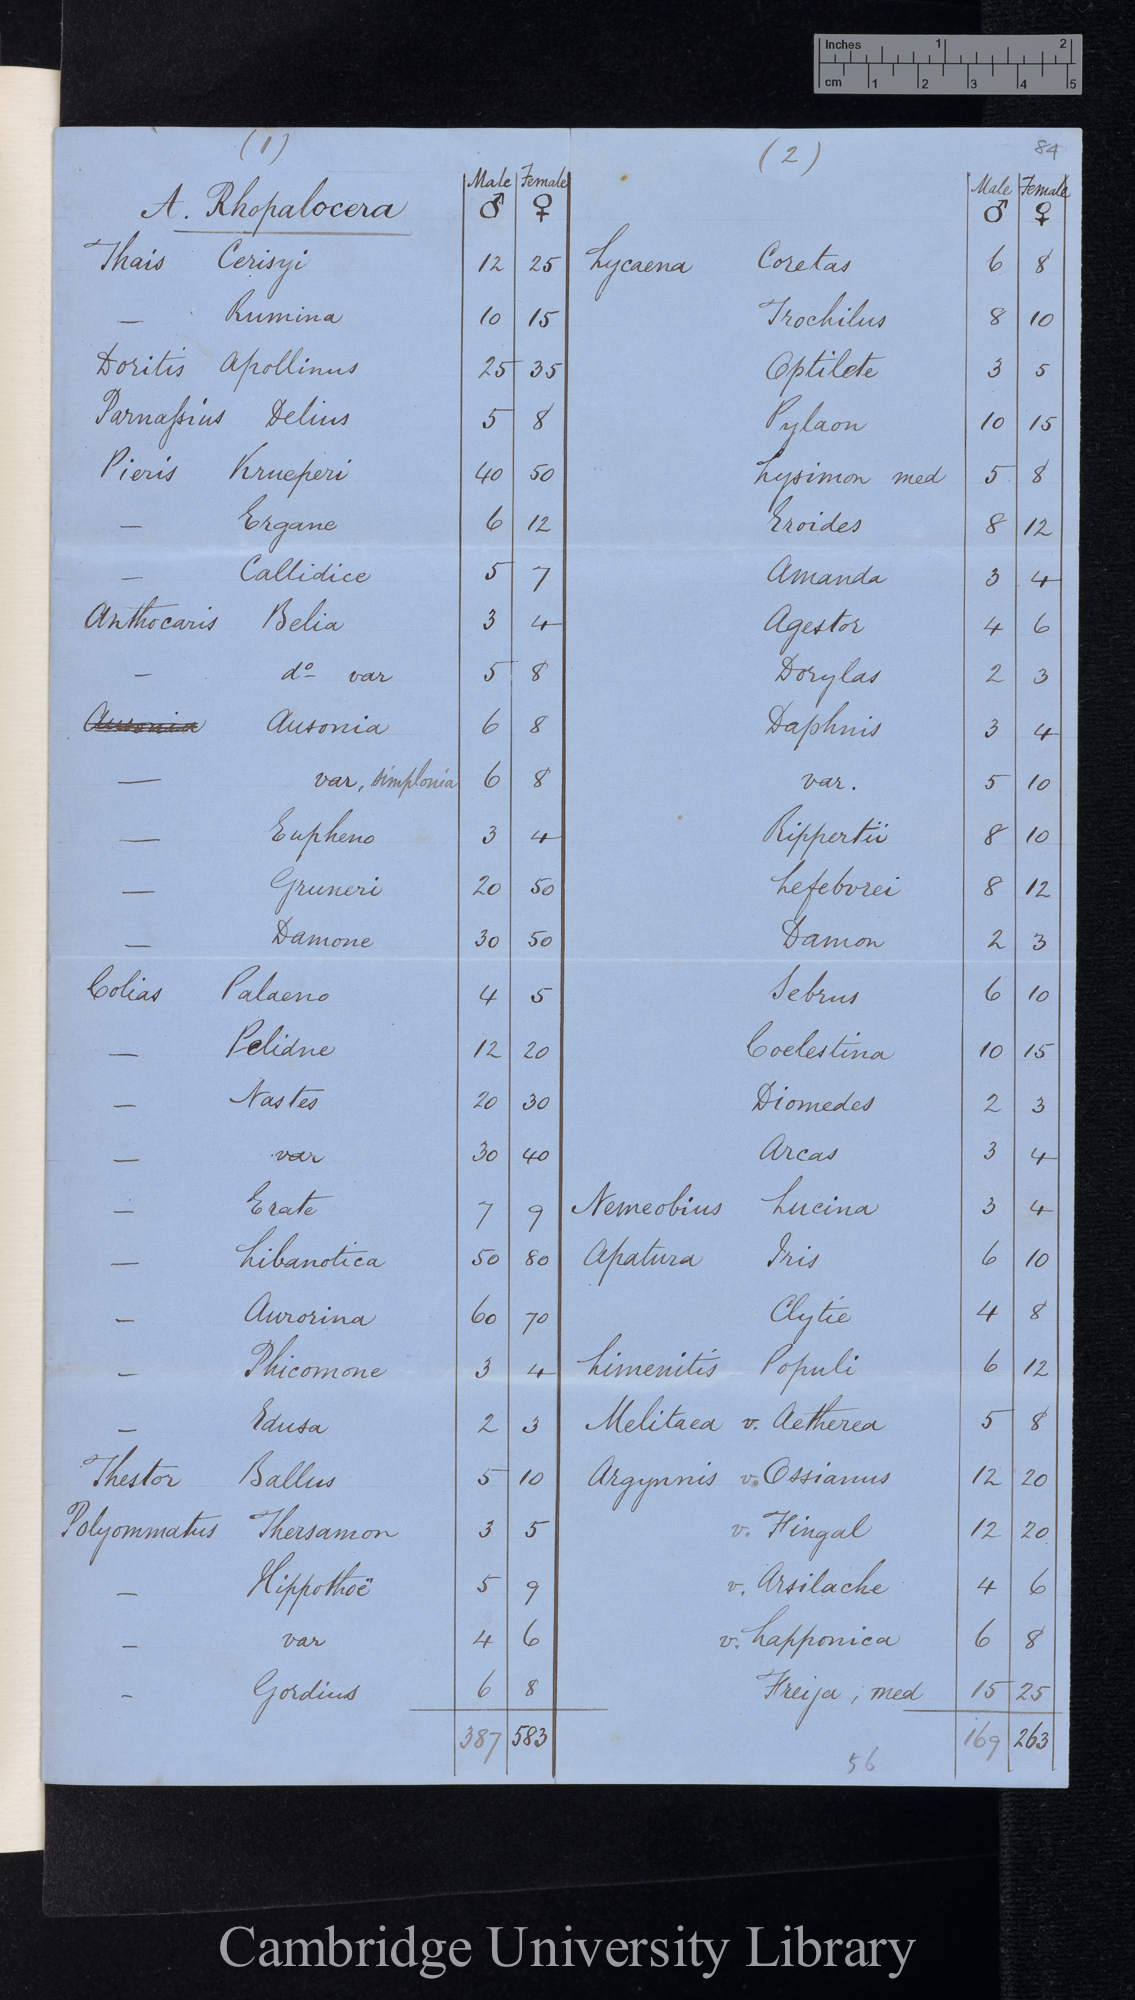 Inches 1 2
cm 1 2 3 4 5
(1)
Male Female
A. Rhopalocera ♂ ♀
Thais Cerisyi 12 25
— Rumina 10 15
Doritis Apollinus 25 35
Parnassius Delius 5 8
Pieris Krueperi 40 50
— Ergane 6 12
— Callidice 5 7
Anthocaris Belia 3 4
— do var 5 8
Ausonia Ausonia 6 8
— var, simplonia 6 8
— Eupheno 3 4
— Gruneri 20 50
— Damone 30 50
Colias Palaeno 4 5
— Pelidne 12 20
— Nastes 20 30
— var 30 40
— Erate 7 9
— Libanotica 50 80
— Aurorina 60 70
— Phicomone 3 4
— Edusa 2 3
Thestor Ballus 5 10
Polyommatus Thersamon 3 5
— Hippothoë 5 9
— var 4 6
— Gordius 6 8
387 583
(2)
84
Male Female
♂ ♀
Lycaena Coretas 6 8
Trochilus 8 10
Optilete 3 5
Pylaon 10 15
Lysimon med 5 8
Eroides 8 12
Amanda 3 4
Agestor 4 6
Dorylas 2 3
Daphnis 3 4
var. 5 10
Rippertii 8 10
Lefebvrei 8 12
Damon 2 3
Sebrus 6 10
Coelestina 10 15
Diomedes 2 3
Arcas 3 4
Nemeobius Lucina 3 4
Apatura Iris 6 10
Clytie 4 8
Limenitis Populi 6 12
Melitaea v. Aetherea 5 8
Argynnis v. Ossianus 12 20
v. Fingal 12 20
v. Arsilache 4 6
v. Lapponica 6 8
Freija, med 15 25
169 263
56
Cambridge University Library